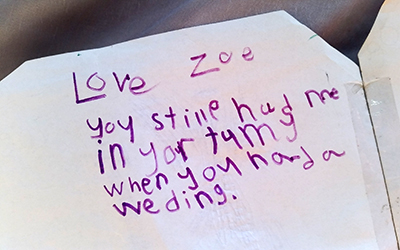 Love Zoe
you stille had me
in yor tumy
when you had a
weding.